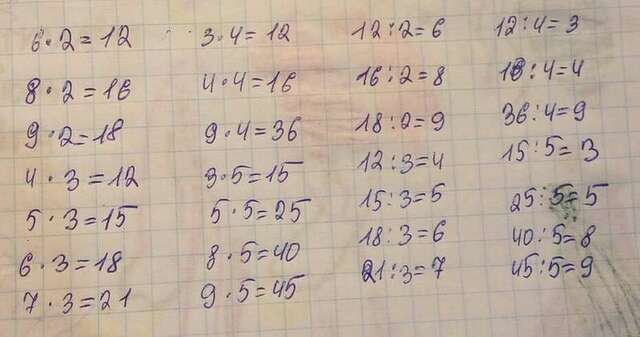 6·2=12 3·4=12 12:2=6 12:4=3
8·2=16 4·4=16 16:2=8 16:4=4
9·2=18 9·4=36 18:2=9 36:4=9
4·3=12 3·5=15 12:3=4 15:5=3
5·3=15 5·5=25 15:3=5 25:5=5
6·3=18 8·5=40 18:3=6 40:5=8
7·3=21 9·5=45 21:3=7 45:5=9